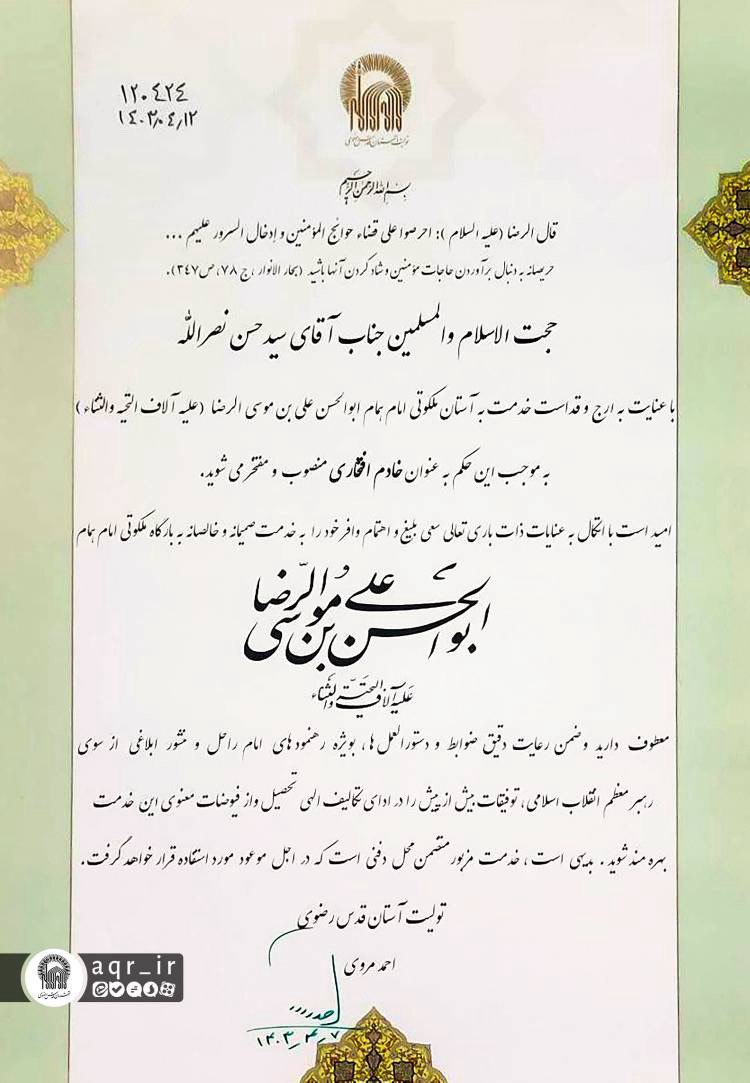 ۱۲۰۴۲۴
۱۴۰۳/۰۴/۱۲
تولیت آستان قدس رضوی
بسم الله الرحمن الرحیم
قال الرضا (علیه السلام): احرصوا علی قضاء حوائج المؤمنین و إدخال السرور علیهم ...
حریصانه به دنبال برآوردن حاجات مؤمنین و شاد کردن آنها باشید (بحار الانوار، ج ۷۸، ص ۳۴۷).
حجت الاسلام والمسلمین جناب آقای سید حسن نصرالله
با عنایت به ارج و قداست خدمت به آستان ملکوتی امام همام ابوالحسن علی بن موسی الرضا (علیه آلاف التحیه والثناء)
به موجب این حکم به عنوان خادم افتخاری منصوب و مفتخر می شوید.
امید است با اتکال به عنایات ذات باری تعالی سعی بلیغ و اهتمام وافر خود را به خدمت صمیمانه و خالصانه به بارگاه ملکوتی امام همام
ابوالحسن علی بن موسی الرضا
علیه آلاف التحیة والثناء
معطوف دارید و ضمن رعایت دقیق ضوابط و دستورالعمل ها، بویژه رهنمودهای امام راحل و منشور ابلاغی از سوی
رهبر معظم انقلاب اسلامی، توفیقات بیش از پیش را در ادای تکالیف الهی تحصیل و از فیوضات معنوی این خدمت
بهره مند شوید. بدیهی است، خدمت مزبور متضمن محل دفنی است که در اجل موعود مورد استفاده قرار خواهد گرفت.
تولیت آستان قدس رضوی
احمد مروی
۱۴۰۳_۴_۷
aqr_ir